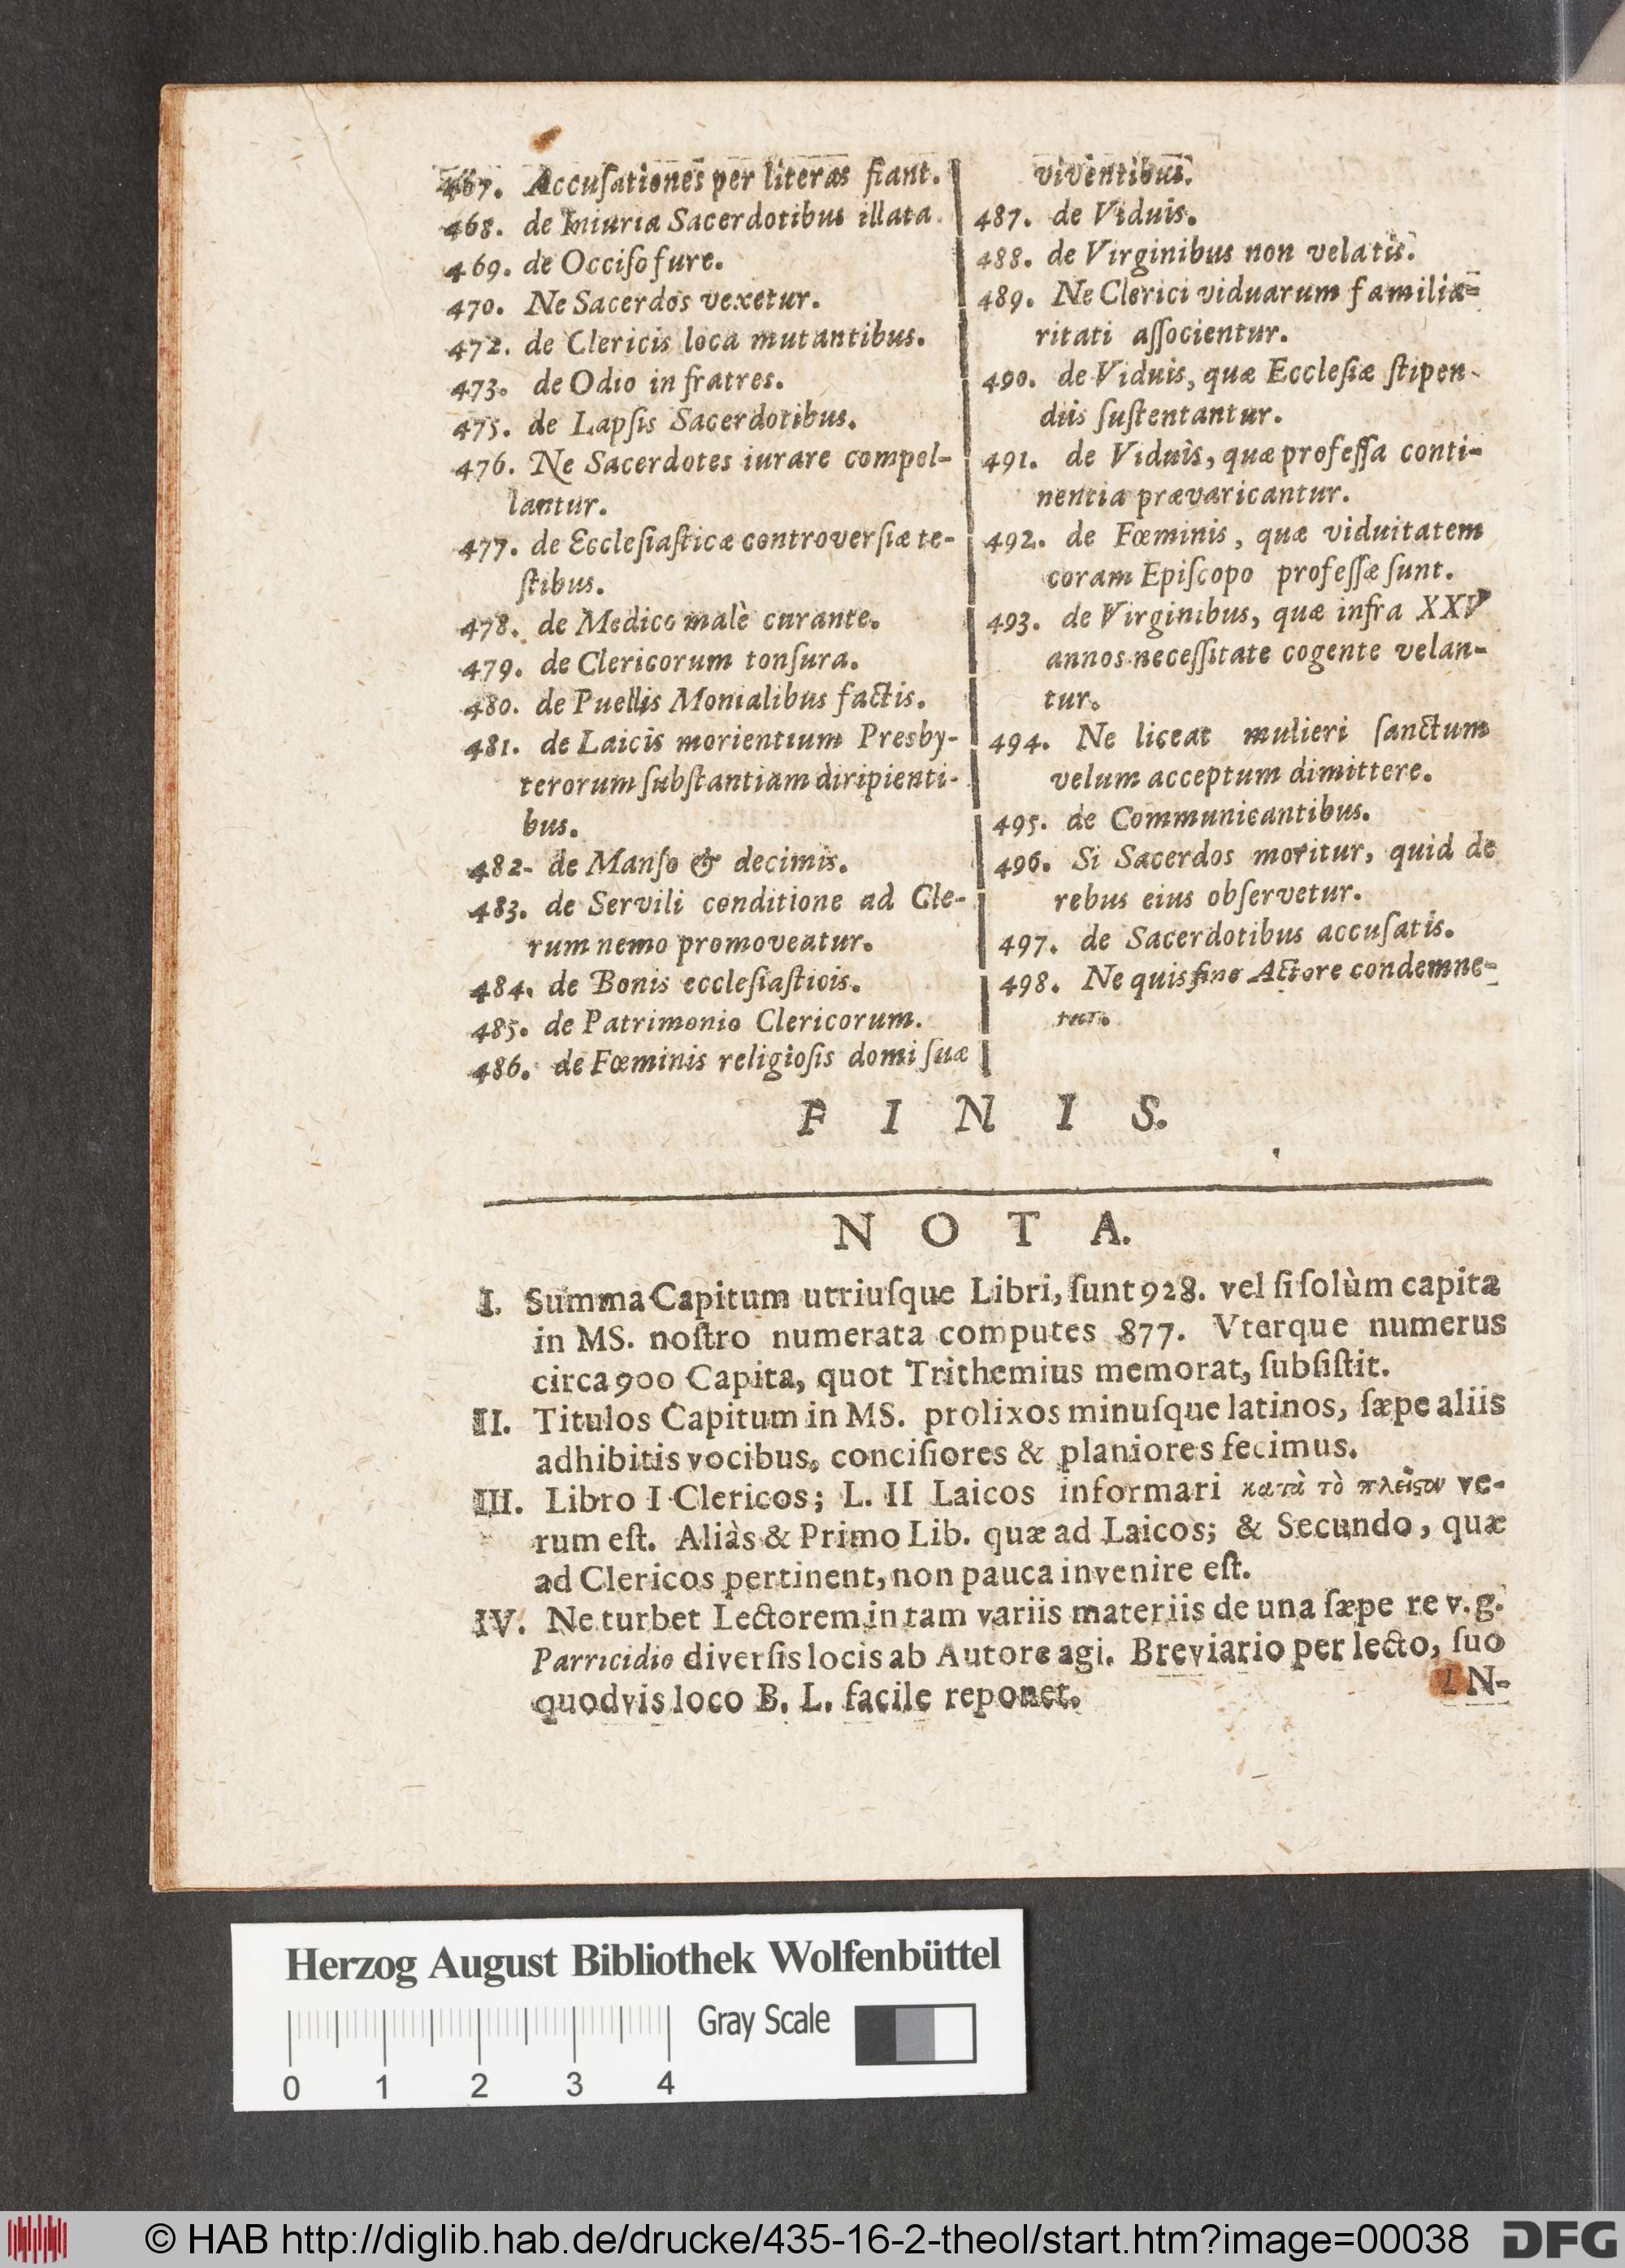 467. Accuſationes per literas fiant.
468. de Iniuria Sacerdotibus illata.
469. de Occiſo fure.
470. Ne Sacerdos vexetur.
472. de Clericis loca mutantibus.
473. de Odio in fratres.
475. de Lapſis Sacerdotibus.
476. Ne Sacerdotes iurare compel-
lantur.
477. de Eccleſiaſticæ controverſiæ te-
ſtibus.
478. de Medico malè curante.
479. de Clericorum tonſura.
480. de Puellis Monialibus factis.
481. de Laicis morientium Presby-
terorum ſubſtantiam diripienti-
bus.
482. de Manſo & decimis.
483. de Servili conditione ad Cle-
rum nemo promoveatur.
484. de Bonis eccleſiaſticis.
485. de Patrimonio Clericorum.
486. de Fœminis religioſis domi ſuæ
viventibus.
487. de Viduis.
488. de Virginibus non velatis.
489. Ne Clerici viduarum familia-
ritati aſſocientur.
490. de Viduis, quæ Eccleſiæ ſtipen-
diis ſuſtentantur.
491. de Viduis, quæ profeſſa conti-
nentia prævaricantur.
492. de Fœminis, quæ viduitatem
coram Epiſcopo profeſſæ ſunt.
493. de Virginibus, quæ infra XXV
annos neceſſitate cogente velan-
tur.
494. Ne liceat mulieri ſanctum
velum acceptum dimittere.
495. de Communicantibus.
496. Si Sacerdos moritur, quid de
rebus eius obſervetur.
497. de Sacerdotibus accuſatis.
498. Ne quis ſine Actore condemne-
tur.
F I N I S.
N O T A.
I. Summa Capitum utriuſque Libri, ſunt 928. vel ſi ſolùm capita
in MS. noſtro numerata computes 877. Vterque numerus
circa 900 Capita, quot Trithemius memorat, ſubſiſtit.
II. Titulos Capitum in MS. prolixos minuſque latinos, ſæpe aliis
adhibitis vocibus, conciſiores & planiores fecimus.
III. Libro I Clericos; L. II Laicos informari κατὰ τὸ πλεῖϛον ve-
rum eſt. Aliàs & Primo Lib. quæ ad Laicos; & Secundo, quæ
ad Clericos pertinent, non pauca invenire eſt.
IV. Ne turbet Lectorem in tam variis materiis de una ſæpe re v. g.
Parricidio diverſis locis ab Autore agi. Breviario per lecto, ſuo
quodvis loco B. L. facile reponet.
IN-
Herzog August Bibliothek Wolfenbüttel
Gray Scale
0 1 2 3 4
© HAB http://diglib.hab.de/drucke/435-16-2-theol/start.htm?image=00038
DFG